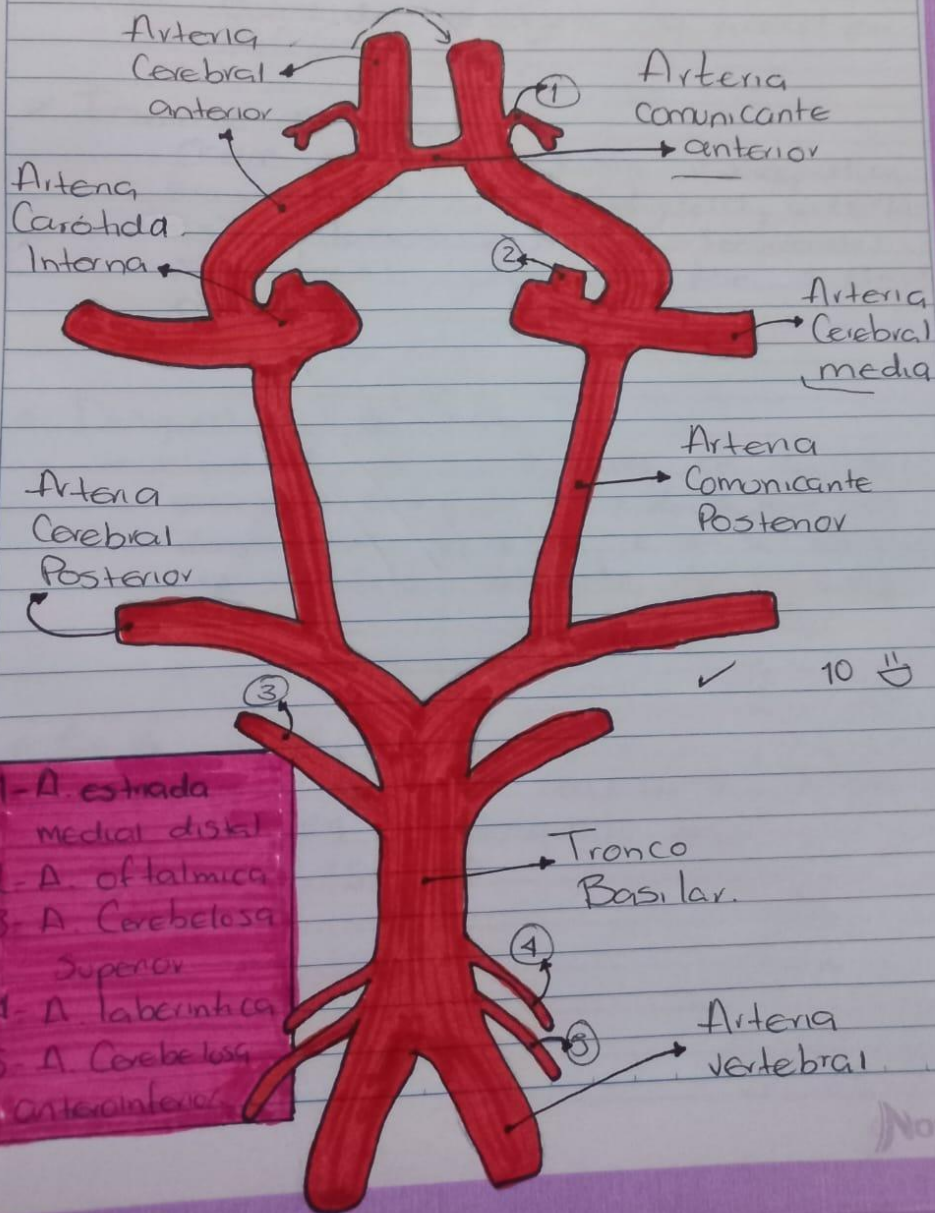 Arteria
Cerebral
anterior
①
Arteria
comunicante
anterior
Arteria
Carótida
Interna
②
Arteria
Cerebral
media
Arteria
Comunicante
Posterior
Arteria
Cerebral
Posterior
10
③
1-A. estriada
medial distal
-A. oftalmica
3- A. Cerebelosa
Superior
- A. laberintica
- A. Cerebelosa
anteroinferior
Tronco
Basilar.
④
⑤
Arteria
vertebral.
No